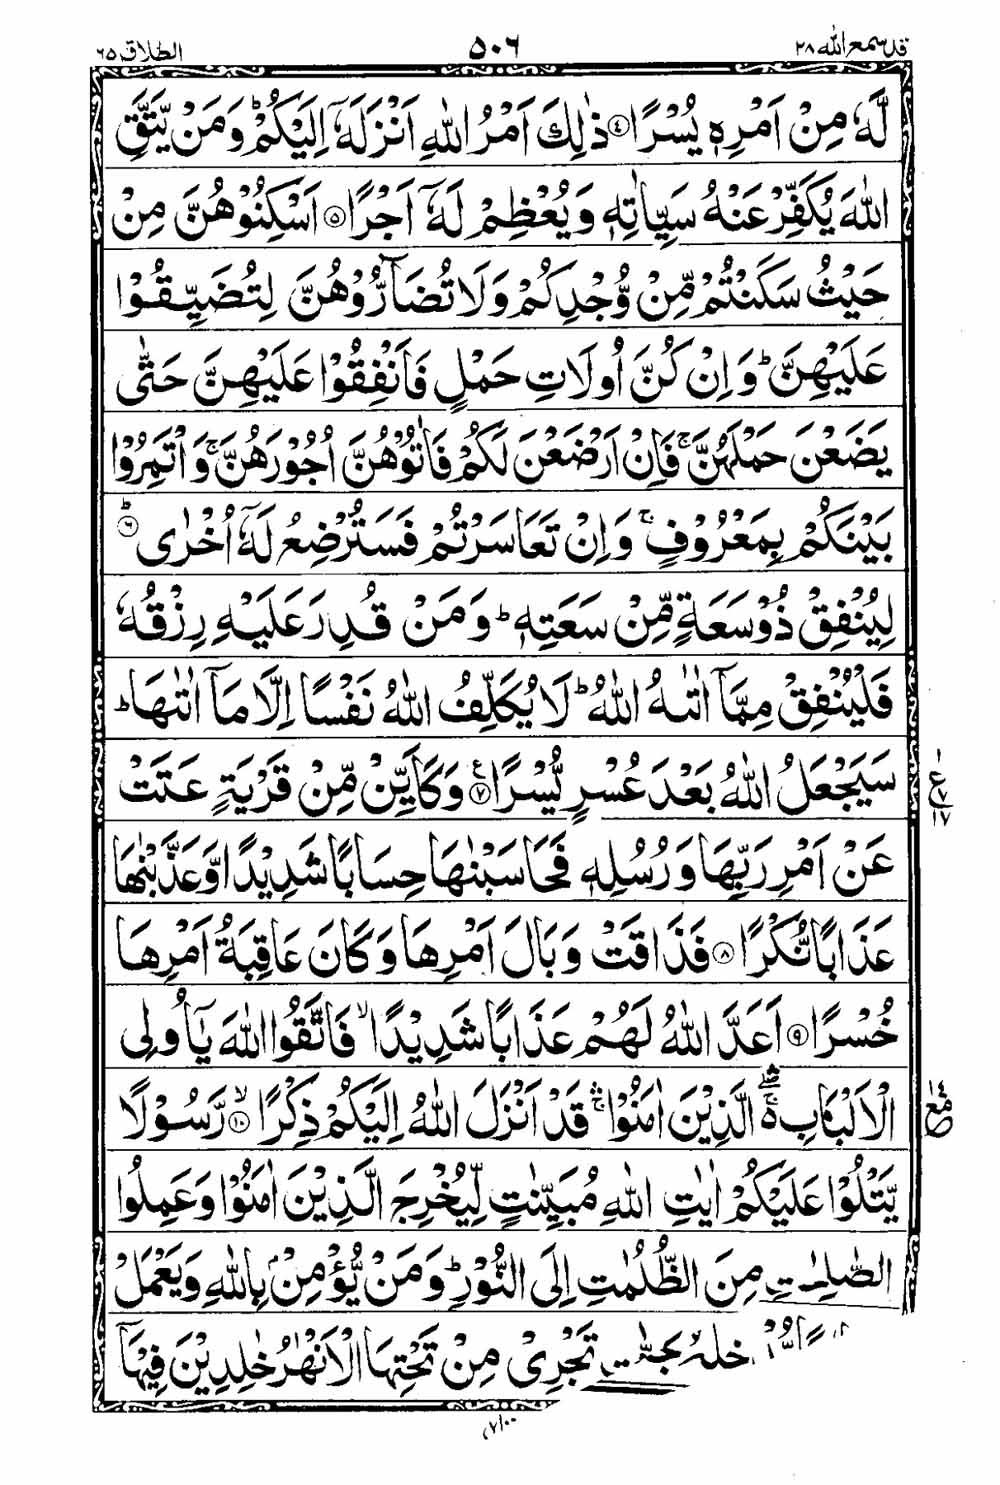 قد سمع الله ٢٨ ٥٠٦ الطلاق ٦٥
لَّهٗ مِنْ اَمْرِهٖ يُسْرًا ۝٤ ذٰلِكَ اَمْرُ اللّٰهِ اَنْزَلَهٗۤ اِلَيْكُمْ ؕ وَمَنْ يَّتَّقِ
اللّٰهَ يُكَفِّرْ عَنْهُ سَيِّاٰتِهٖ وَيُعْظِمْ لَهٗۤ اَجْرًا ۝٥ اَسْكِنُوْهُنَّ مِنْ
حَيْثُ سَكَنْتُمْ مِّنْ وُّجْدِكُمْ وَلَا تُضَآرُّوْهُنَّ لِتُضَيِّقُوْا
عَلَيْهِنَّ ؕ وَاِنْ كُنَّ اُولَاتِ حَمْلٍ فَاَنْفِقُوْا عَلَيْهِنَّ حَتّٰى
يَضَعْنَ حَمْلَهُنَّ ۚ فَاِنْ اَرْضَعْنَ لَكُمْ فَاٰتُوْهُنَّ اُجُوْرَهُنَّ ۚ وَاْتَمِرُوْا
بَيْنَكُمْ بِمَعْرُوْفٍ ۚ وَاِنْ تَعَاسَرْتُمْ فَسَتُرْضِعُ لَهٗۤ اُخْرٰى ؕ ۝٦
لِيُنْفِقْ ذُوْ سَعَةٍ مِّنْ سَعَتِهٖ ؕ وَمَنْ قُدِرَ عَلَيْهِ رِزْقُهٗ
فَلْيُنْفِقْ مِمَّاۤ اٰتٰىهُ اللّٰهُ ؕ لَا يُكَلِّفُ اللّٰهُ نَفْسًا اِلَّا مَاۤ اٰتٰىهَا ؕ
سَيَجْعَلُ اللّٰهُ بَعْدَ عُسْرٍ يُّسْرًا ۝٧ ع وَكَاَيِّنْ مِّنْ قَرْيَةٍ عَتَتْ
١ ع ٧ ١٧
عَنْ اَمْرِ رَبِّهَا وَرُسُلِهٖ فَحَاسَبْنٰهَا حِسَابًا شَدِيْدًا وَّعَذَّبْنٰهَا
عَذَابًا نُّكْرًا ۝٨ فَذَاقَتْ وَبَالَ اَمْرِهَا وَكَانَ عَاقِبَةُ اَمْرِهَا
خُسْرًا ۝٩ اَعَدَّ اللّٰهُ لَهُمْ عَذَابًا شَدِيْدًا ۙ فَاتَّقُوا اللّٰهَ يٰۤاُولِى
الْاَلْبَابِ ۛۚ الَّذِيْنَ اٰمَنُوْا ۛۚ قَدْ اَنْزَلَ اللّٰهُ اِلَيْكُمْ ذِكْرًا ۙ ۝١٠ رَّسُوْلًا
يَّتْلُوْا عَلَيْكُمْ اٰيٰتِ اللّٰهِ مُبَيِّنٰتٍ لِّيُخْرِجَ الَّذِيْنَ اٰمَنُوْا وَعَمِلُوا
الصّٰلِحٰتِ مِنَ الظُّلُمٰتِ اِلَى النُّوْرِ ؕ وَمَنْ يُّؤْمِنْۢ بِاللّٰهِ وَيَعْمَلْ
خله جنّٰت تَجْرِىْ مِنْ تَحْتِهَا الْاَنْهٰرُ خٰلِدِيْنَ فِيْهَاۤ